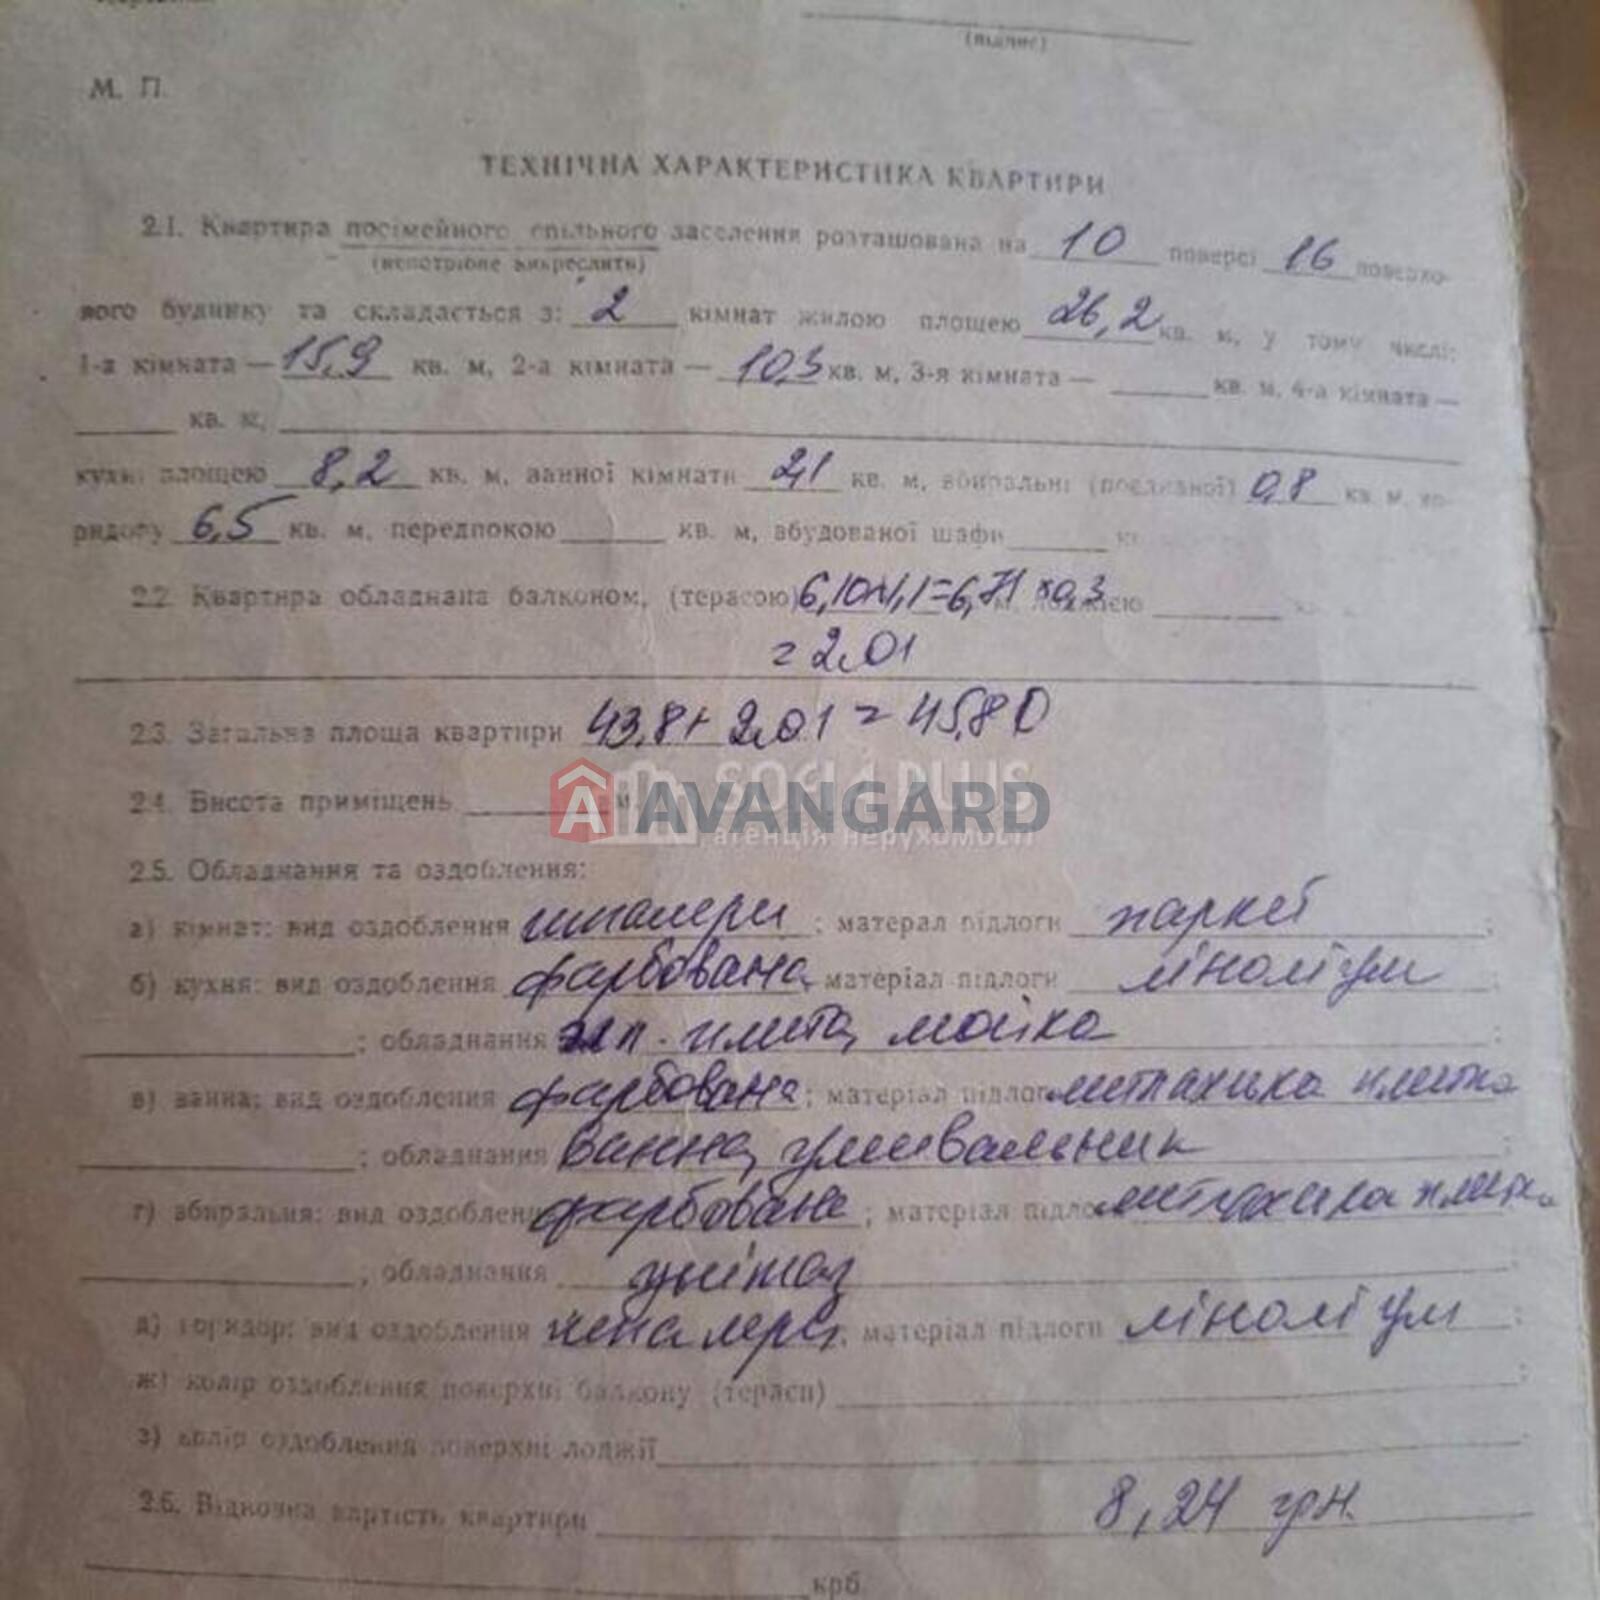 (підпис)
М. П.
ТЕХНІЧНА ХАРАКТЕРИСТИКА КВАРТИРИ
2.1. Квартира посімейного спільного заселення розташована на 10 поверсі 16 поверхо-
(непотрібне викреслити)
вого будинку та складається з: 2 кімнат жилою площею 26,2 кв. м, у тому числі:
1-а кімната — 15,9 кв. м, 2-а кімната — 10,3 кв. м, 3-я кімната — кв. м, 4-а кімната —
кв. м,
кухні площею 8,2 кв. м, ванної кімнати 2,1 кв. м, вбиральні (поєднаної) 0,8 кв. м, ко-
ридору 6,5 кв. м, передпокою кв. м, вбудованої шафи
2.2. Квартира обладнана балконом, (терасою) 6,10×1,1=6,71 ×0,3
= 2.01
2.3. Загальна площа квартири 43,8+2.01=45,80
2.4. Висота приміщень м.
SOCIAL PLUS
AVANGARD
агенція нерухомості
2.5. Обладнання та оздоблення:
а) кімнат: вид оздоблення шпалери; матерал підлоги паркет;
б) кухня: вид оздоблення фарбована, матеріал підлоги ліноліум
; обладнання эл. плита, мойка;
в) ванна: вид оздоблення фарбована; матеріал підлоги метлахська плитка
; обладнання ванна, умивальник;
г) вбиральня: вид оздоблення фарбована; матеріал підлоги плитка
; обладнання унітаз
д) коридор: вид оздоблення матеріал підлоги лінолі ум;
ж) колір оздоблення поверхні балкону (тераси)
з) колір оздоблення поверхні лоджії
2.6. Відновна вартість квартири 8,24 грн.
крб.